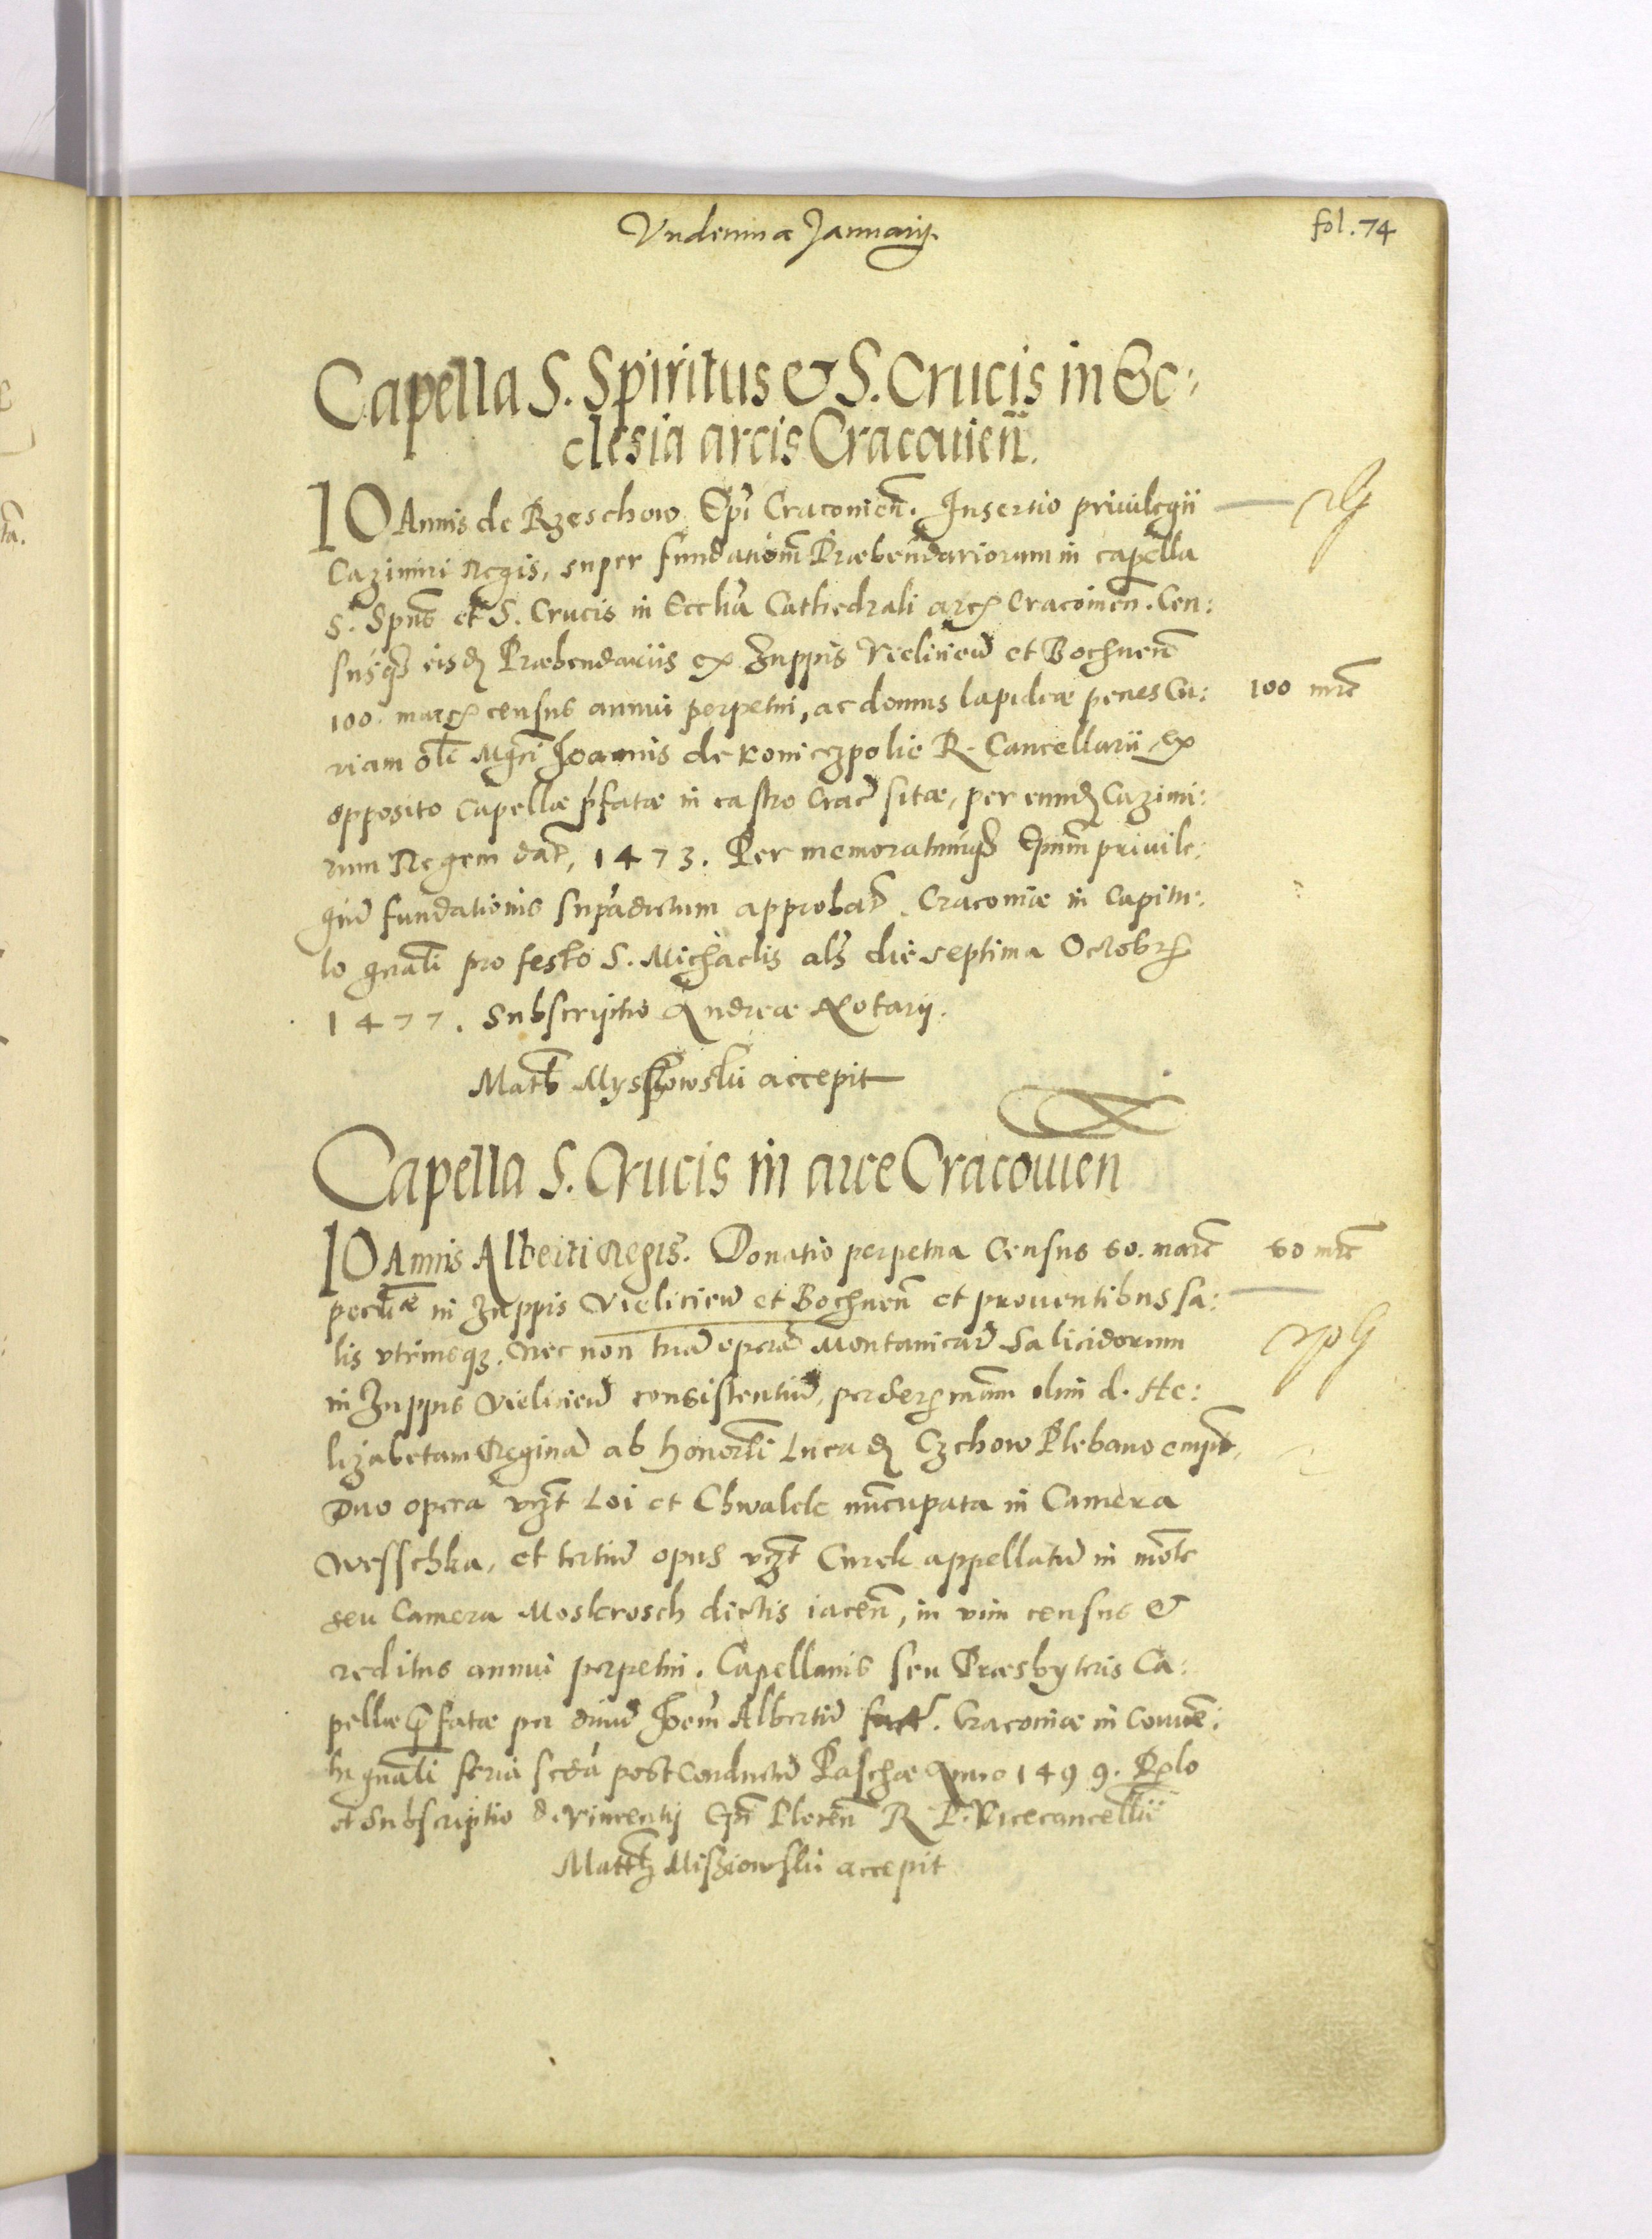 Vndecima Januarij.
fol. 74
Capella S. Spiritus & S. Crucis in Ec:
clesia arcis Cracouien̄.
IOAnnis de Rzeschow Ep̄i Cracouien̄. Insertio priuilegii
Cazimiri Regis, super fundationē Præbendariorum in capella
S. Sp̄us et S. Crucis in Eccl̄ia Cathedrali arcꝭ Cracouien̄. Cen:
susqꝫ eisdꝫ Præbendariis ex Zuppis Vieliciēn et Bochnen̄
100. marcꝭ census annui perpetui, ac domus lapideæ penes Cu: 100 mrc̄
riam olī Mgc̄i Joannis de Koniczpolie R. Cancellarii ex
opposito Capellæ p̄fatæ in castro Crac̄ sitæ, per eundꝫ Cazimi:
rum Regem dat̄, 1473. Per memoratumqꝫ Ep̄um priuile:
giū fundationis sup̄adictum approbat̄. Cracouiæ in Capitu:
lo gn̄ali pro festo S. Michaelis als̄ die septima Octobrꝭ
1477. Subscriptio Andreæ Notarij.
Math̄ Myszkowski accepit
Capella S. Crucis in arce Cracouien
IOAnnis Alberti Regis. Donatio perpetua Census 60. marc̄ 60 mrc̄
pecūiæ in Zuppis Vieliciēn et Bochnen̄ et prouentibus sa:
lis vtrimsqꝫ. Nec non triū operū Montanicarū Salicidorum
in Zuppis Vieliciēn consistentiū, per Serꝭmam olim d. He:
lizabetam Reginā ab honorl̄i Luca dꝫ Czchow Plebano empt̄,
Duo opera vꝫt Loi et Chwalek nūcupata in Camera
Wesschka, et tertiū opus vꝫt Curek appellatū in mōte
seu Camera Moskrosch dictis iacen̄, in vim census &
reditus annui perpetui. Capellanis seu Præsbyteris Ca:
pellæ p̄fatæ per diuū Joem̄ Albertū fact̄. Cracouiæ in Conuē:
tu gn̄ali feria scd̄a post Conductū Paschæ Anno 1499.
et Subscriptio d. Vincentij Ep̄i Plocen̄ R. P. Vicecancellīi
Matth Miszkowski accepit